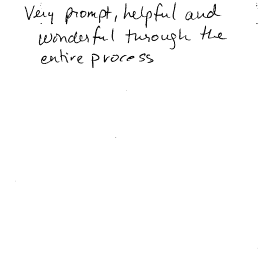 Very prompt, helpful and
wonderful through the
entire process